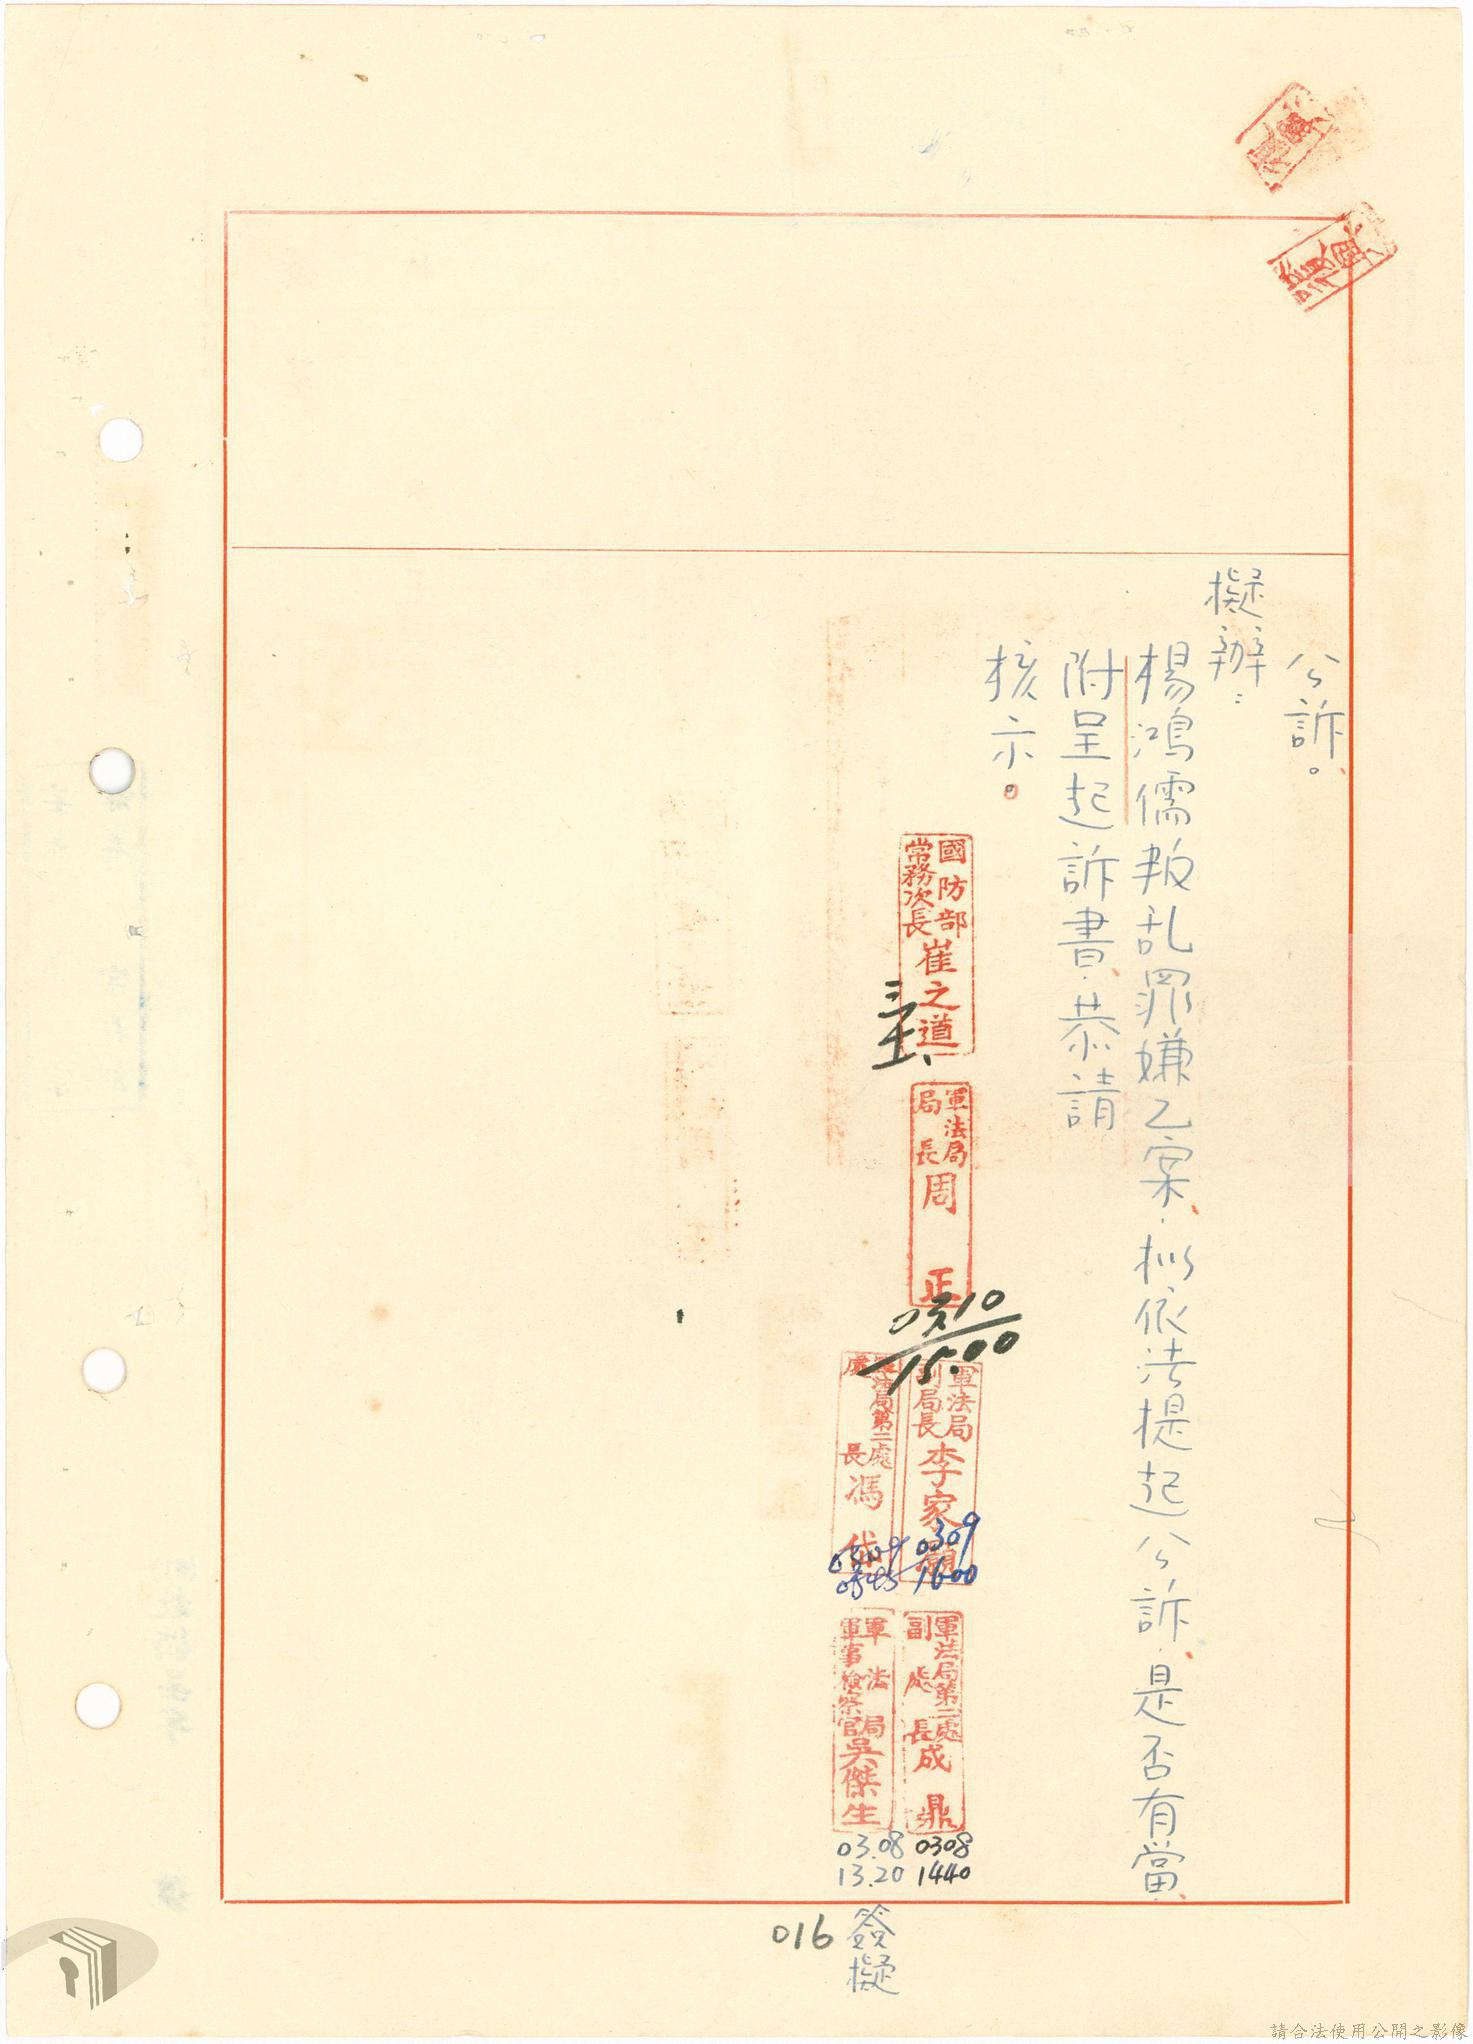 公訴。
擬辦：
楊鴻儒叛乱罪嫌乙案，拟依法提起公訴，是否有當，
附呈起訴書，恭請
核示。
國防部常務次長崔之道
軍法局局長周正
0310
15.00
軍法局副局長李家
0309
1600
軍法局第二處處長馮
0309
0845
軍法局第二處副處長成鼎
0308
1440
軍法局軍事檢察官吳傑生
03.08
13.20
簽擬
016
請合法使用公開之影像